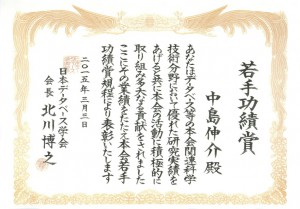 若手功績賞
中島伸介殿
あなたはデータベース等の本会関連科学
技術分野において優れた研究実績を
あげると共に本会の活動に積極的に
取り組み多大なる貢献をされました
ここにその業績をたたえ本会若手
功績賞規程により表彰いたします
二〇一五年三月三日
日本データベース学会
会長 北川博之